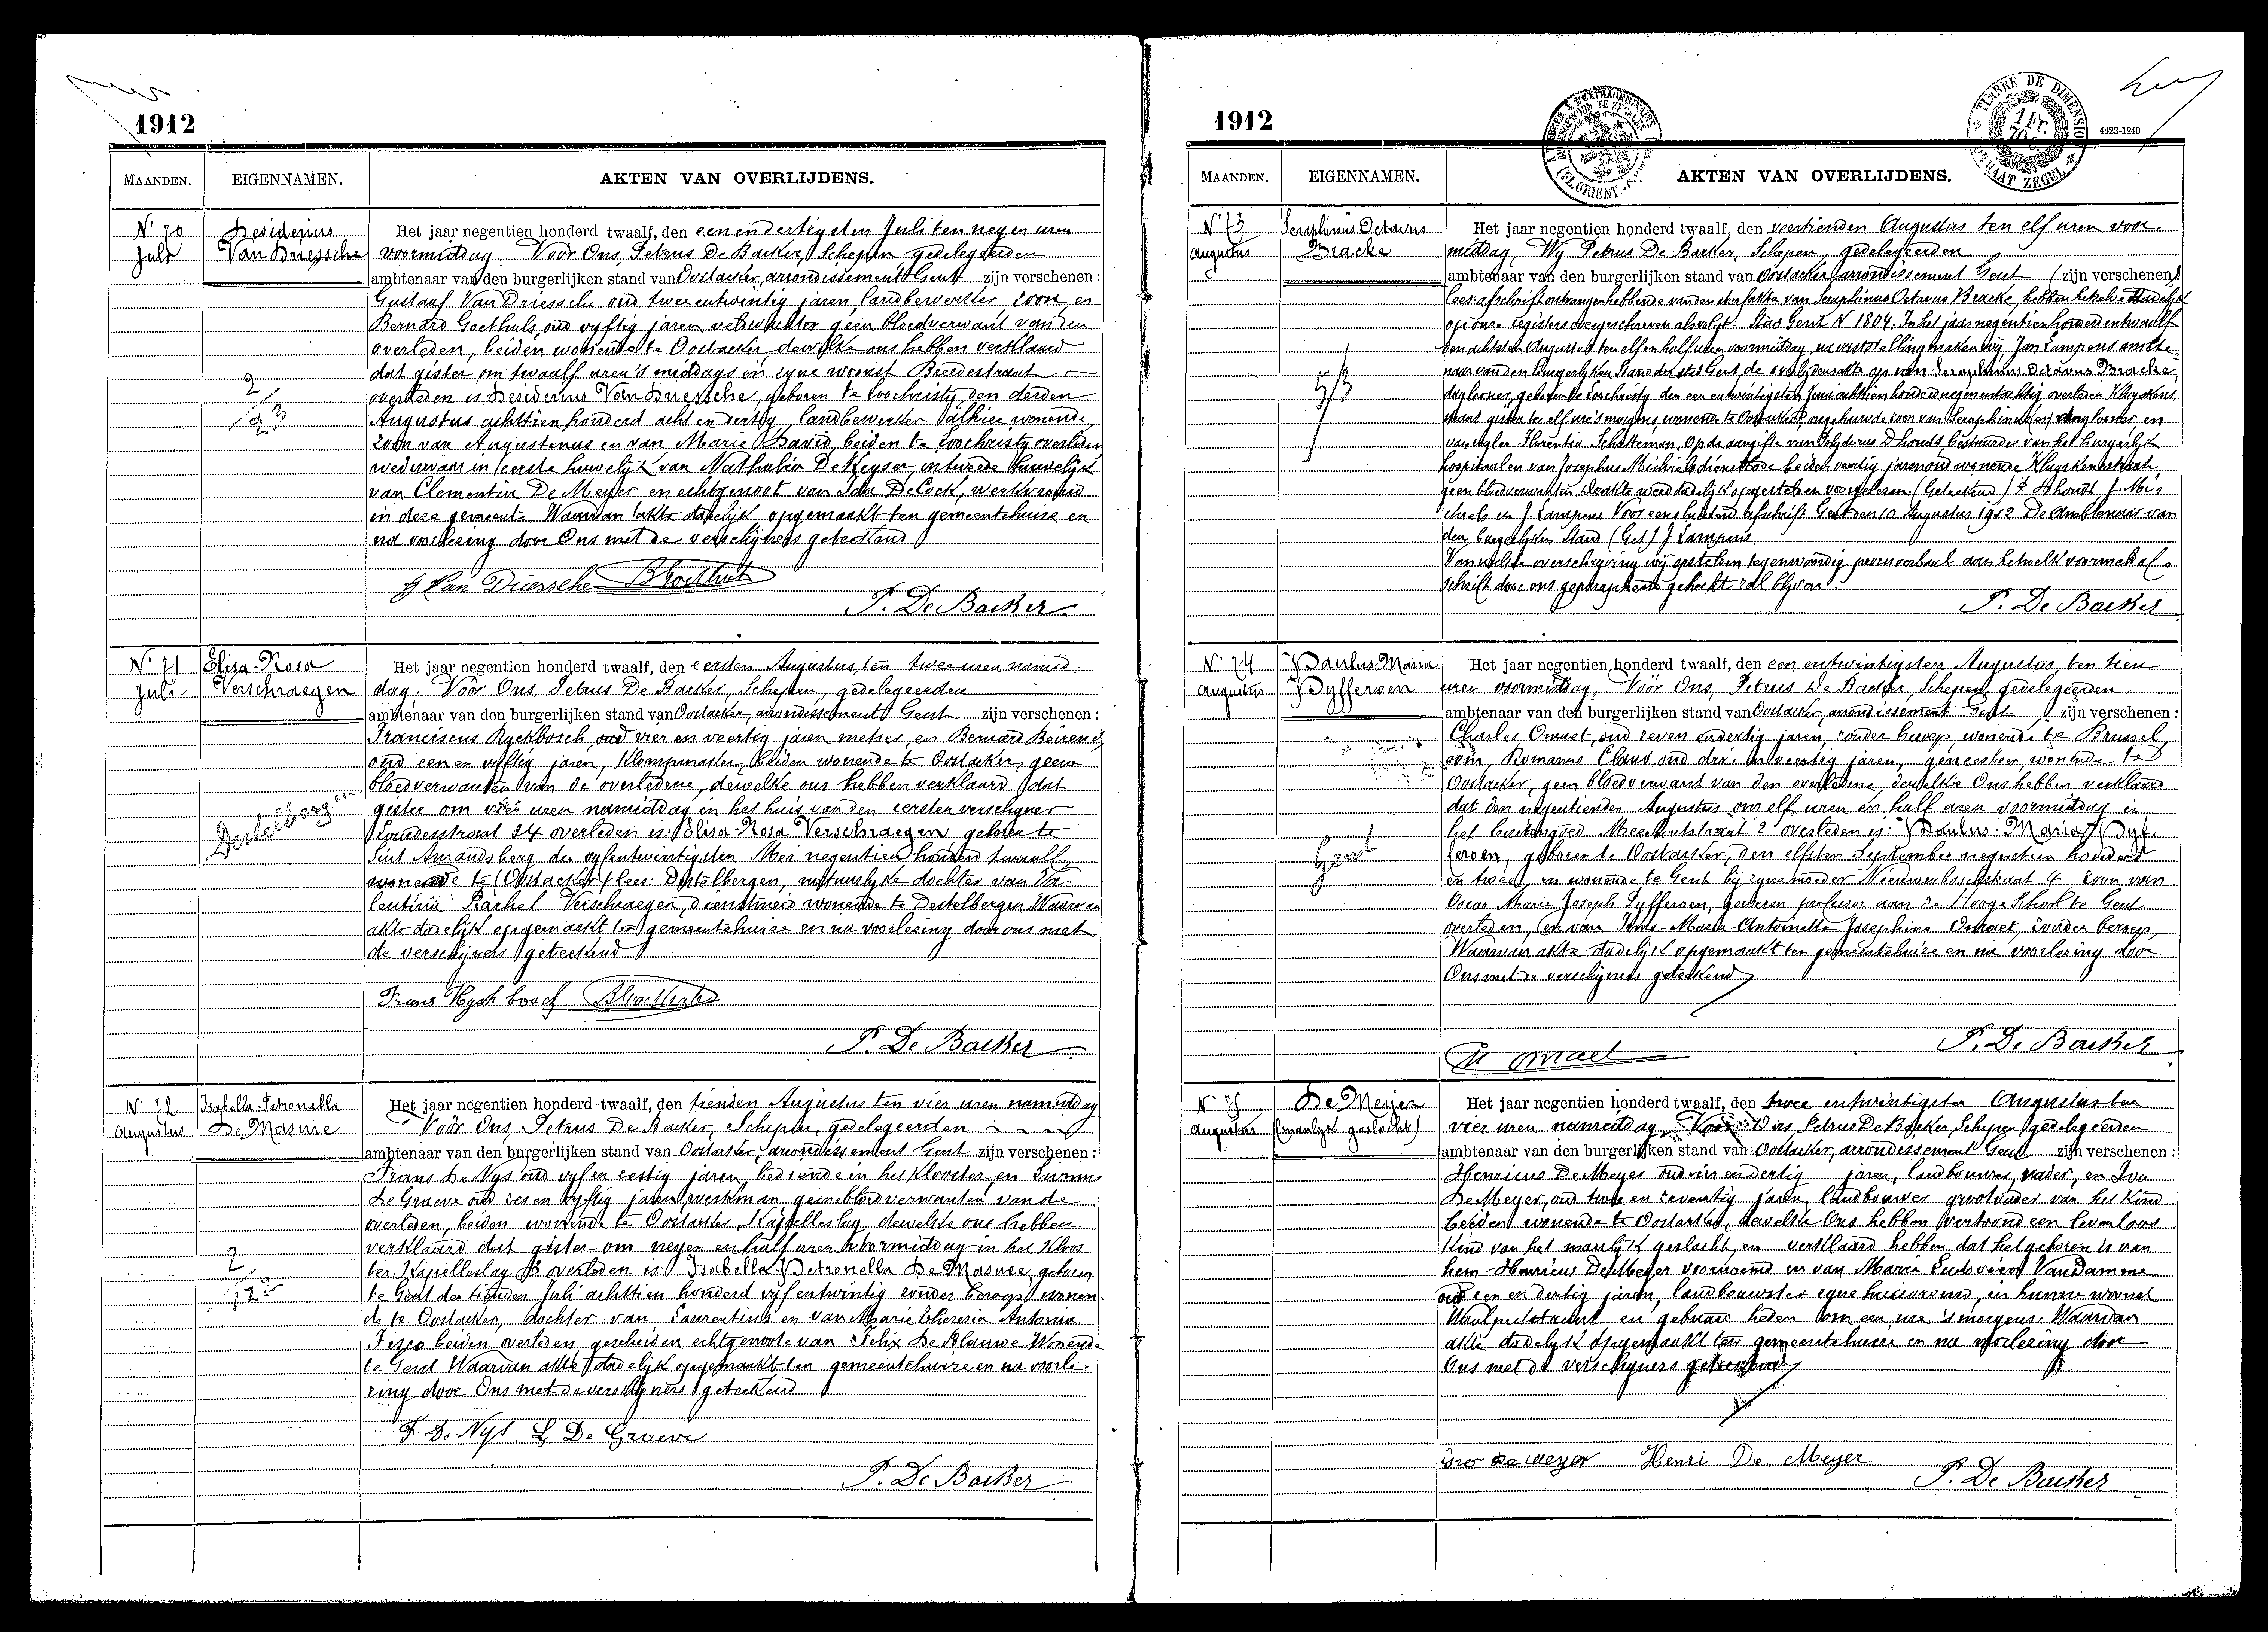 1912
MAANDEN. EIGENNAMEN. AKTEN VAN OVERLIJDENS.
N. 70 Juli
Desiderius Van Driessche
Het jaar negentien honderd twaalf, den eenendertigsten Juli ten negen uren
voormiddag. Vóór Ons, Petrus De Backer, Schepen gedelegeerden
ambtenaar van den burgerlijken stand van Oostacker, arrondissement Gent zijn verschenen:
Gustaaf Van Driessche oud twee entwintig jaren, landbewerker, zoon, en
Bernard Goethals, oud vyftig jaren veldwachter geen bloedverwant van den
overleden, beiden wonende te Oostacker, dewelke ons hebben verklaard
dat gister om twaalf uren 's middags in zyne woonst Breedestraat
overleden is Desiderius Van Driessche, geboren te Loochristy den derden
Augustus achttien honderd acht en dertig, landbewerker alhier wonende,
zoon van Augustinus en van Marie David, beiden te Loochristy overleden
weduwaar in eerste huwelijk van Nathalia De Keyser, in tweede huwelijk
van Clementia De Meyer en echtgenoot van Ida De Cock, werkvrouw
in deze gemeente Waarvan akte dadelijk opgemaakt ten gemeentehuize en
na voorlezing door Ons met de verschijners geteekend
2/93
G Van Driessche B Goethals
P. De Backer
N. 71 Juli
Elisa-Rosa Verschraegen
Het jaar negentien honderd twaalf, den eersten Augustus, ten twee uren namid
dag. Vóór Ons, Petrus De Backer, Schepen, gedelegeerden
ambtenaar van den burgerlijken stand van Oostacker, arrondissement Gent zijn verschenen:
Franciscus Ryckbosch, oud vier en veertig jaren metser, en Bernard
oud een en vyftig jaren, Klompmaker, beiden wonende te Oostacker, geen
bloedverwanten van de overledene, dewelke ons hebben verklaard dat
gister om vier uren namiddag in het huis van den eersten verschyner
straat 34 overleden is: Elisa-Rosa Verschraegen geboren te
Sint Amandsberg den vyfentwintigsten Mei negentien honderd twaalf
wonende te (Oostacker) lees: Destelbergen, natuurlyke dochter van Va-
lentina Rachel Verschraegen, dienstmeid wonende te Destelbergen Waarvan
akte dadelijk opgemaakt ten gemeentehuize en na voorlezing door ons met
de verschijners geteekend
Destelbergen
Frans Ryckbosch
P. De Backer
N. 72 Augustus
Isabella-Petronella De Masure
Het jaar negentien honderd twaalf, den tienden Augustus ten vier uren namiddag
Vóór Ons, Petrus De Backer, Schepen, gedelegeerden
ambtenaar van den burgerlijken stand van Oostacker, arrondissement Gent zijn verschenen:
Frans De Nys oud vyf en zestig jaren, bediende in het Klooster, en Livinus
De Graeve oud zes en vyftig jaren, werkman, geene bloedverwanten van de
overleden, beiden wonende te Oostacker, Kapelleslag dewelke ons hebben
verklaard dat gister om negen en half uren voormiddag in het Kloos
ter Kapelleslag 8 overleden is: Isabella-Petronella De Masure, geboren
te Gent den tienden Juli achttien honderd vyf entwintig zonder beroep wonen
de te Oostacker, dochter van Laurentius en van Marie Theresia Antonia
Fisco beiden overleden, gescheiden echtgenoote van Felix De Blauwe Wonende
te Gent Waarvan akte dadelijk opgemaakt ten gemeentehuize en na voorle-
zing door Ons met de verschijners geteekend
F. De Nys. L De Graeve
P. De Backer
1912
4423-1240
TIMBRE DE DIMENSION
1 Fr.
MAANDEN. EIGENNAMEN. AKTEN VAN OVERLIJDENS.
N. 73 Augustus
Seraphinus Octavus Bracke
Het jaar negentien honderd twaalf, den veertienden Augustus ten elf uren voor-
middag, Wij Petrus De Backer, Schepen, gedelegeerden
ambtenaar van den burgerlijken stand van Oostacker arrondissement Gent (zijn verschenen)
lees: afschrift ontvangen hebbende van den sterfakte van Seraphinus Octavus Bracke, hebben hetzelve dadelijk
op onze registers overgeschreven als volgt: Stad Gent N 1804. In het jaar negentien honderd en twaalf
den achtsten Augustus ten elf en half uren voormiddag, na vaststelling maken wij, Jan Lampens ambte-
naar van den burgerlyken Stand der stad Gent, de overlydensakte op van Seraphinus Octavus Bracke,
daglooner, geboren te Loochristy den een entwintigsten Juni achttien honderd negenentachtig overleden Kluyskens
straat gister te elf ure 's morgens wonende te Oostacker, ongehuwde zoon van Seraphinus daglooner en
van wylen Florentia Schatteman, Op de aangifte van Polydorus D'hondt bestuurder van het burgerlyk
hospitaal en van Josephus Michiels dienstbode beiden veertig jaren oud wonende Kluyskensstraat
geen bloedverwanten De akte werd dadelijk opgesteld en voorgelezen (Geteekend) P D'hondt J. Mi-
chiels en J Lampens Voor eensluidend afschrift Gent den 10 Augustus 1912 De Ambtenaar van
den burgerlyken Stand (Get) J Lampens
Van welke overschryving wij opstellen tegenwoordig procesverbaal aan hetwelk voormeld af-
schrift door ons geparapheerd gehecht zal blyven.
P. De Backer
N. 74 Augustus
Paulus-Maria Pyfferoen
Het jaar negentien honderd twaalf, den een entwintigsten Augustus, ten tien
uren voormiddag, Vóór Ons, Petrus De Backer, Schepen, gedelegeerden
ambtenaar van den burgerlijken stand van Oostacker, arrondissement Gent zijn verschenen:
Charles Omaet, oud zeven endertig jaren, zonder beroep, wonende te Brussel,
oom, Romanus Claus oud drie en veertig jaren, geneesheer, wonende te
Oostacker, geen bloedverwant van den overledene, dewelke Ons hebben verklaard
dat den negentienden Augustus om elf uren en half uren voormiddag in
het buitengoed Meerhoutstraat 2 overleden is: Paulus-Maria Pyf-
feroen, geboren te Oostacker, den elfsten September negentien honderd
en twee, en wonende te Gent bij zyne moeder Nieuwenboschstraat 4 zoon van
Oscar Marie Joseph Pyfferoen, gewezen professor aan de Hooge School te Gent
overleden, en van Marie-Antoinette Josephine Omaet, zonder beroep,
Waarvan akte dadelijk opgemaakt ten gemeentehuize en na voorlezing door
Ons met de verschijners geteekend
Gent
P. De Backer
N. 75 Augustus
De Meyer (manlyk geslacht)
Het jaar negentien honderd twaalf, den twee entwintigsten Augustus ten
vier uren namiddag, Voor Ons, Petrus De Backer, Schepen, gedelegeerden
ambtenaar van den burgerlijken stand van Oostacker, arrondissement Gent zijn verschenen:
Henricus De Meyer oud vier en dertig jaren, landbouwer, vader, en Ivo
De Meyer, oud twee en zeventig jaren, landbouwer grootvader van het Kind
beiden wonende te Oostacker, dewelke Ons hebben vertoond een levenloos
Kind van het manlyk geslacht, en verklaard hebben dat het geboren is van
hem Henricus De Meyer voornoemd en van Marie Ludovica Van Damme
oud een en dertig jaren, landbouwster zyne huisvrouw, in hunne woonst
Waalputstraat en gebaard heden om een ure 's morgens. Waarvan
akte dadelyk opgemaakt ten gemeentehuize en na voorlezing door
Ons met de verschyners geteekend
Ivo De Meyer Henri De Meyer
P. De Backer